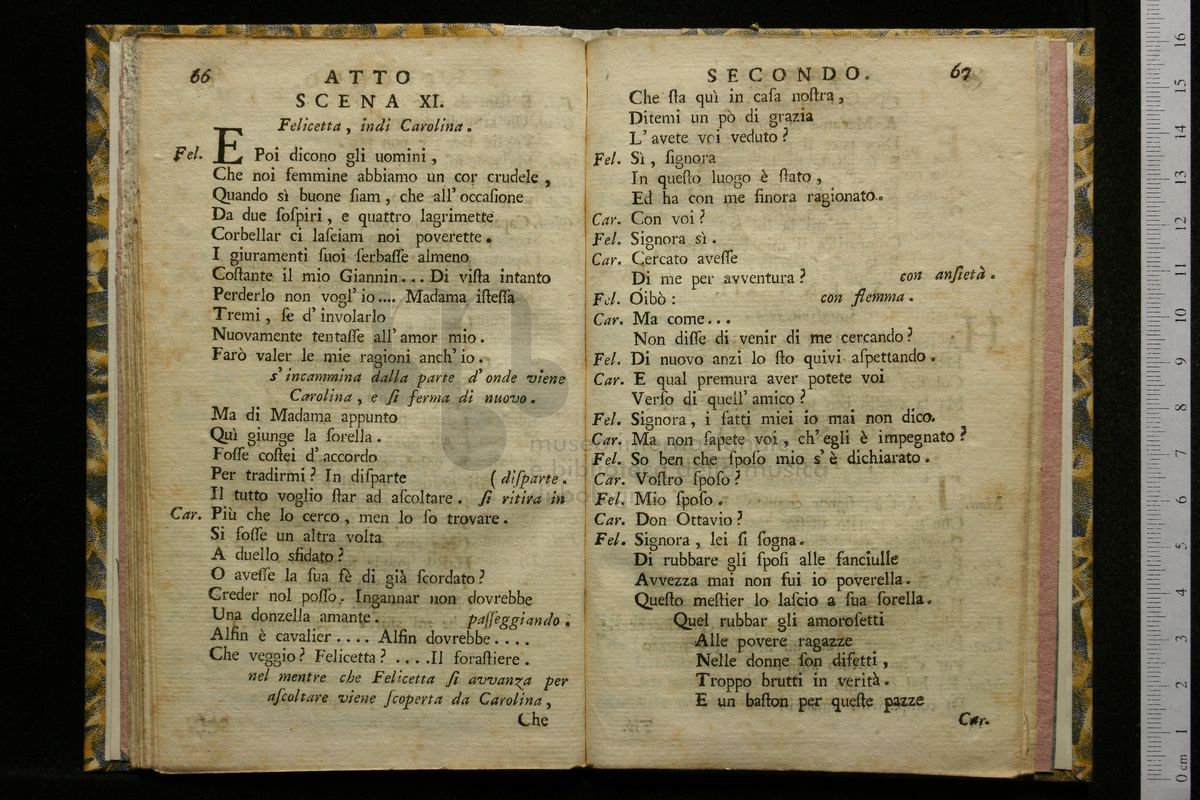 66 ATTO
SCENA XI.
Felicetta, indi Carolina.
Fel. E Poi dicono gli uomini,
Che noi femmine abbiamo un cor crudele,
Quando sì buone ſiam, che all' occaſione
Da due ſoſpiri, e quattro lagrimette
Corbellar ci laſciam noi poverette.
I giuramenti ſuoi ſerbaſſe almeno
Coſtante il mio Giannin... Di viſta intanto
Perderlo non vogl' io.... Madama iſteſſa
Tremi, ſe d' involarlo
Nuovamente tentaſſe all' amor mio.
Farò valer le mie ragioni anch' io.
s' incammina dalla parte d' onde viene
Carolina, e ſi ferma di nuovo.
Ma di Madama appunto
Quì giunge la ſorella.
Foſſe coſtei d' accordo
Per tradirmi? In diſparte (diſparte.
Il tutto voglio ſtar ad aſcoltare. ſi ritira in
Car. Più che lo cerco, men lo ſo trovare.
Si foſſe un altra volta
A duello sfidato?
O aveſſe la ſua fè di già ſcordato?
Creder nol poſſo. Ingannar non dovrebbe
Una donzella amante. paſſeggiando.
Alfin è cavalier.... Alfin dovrebbe....
Che veggio? Felicetta? ....Il foraſtiere.
nel mentre che Felicetta ſi avvanza per
aſcoltare viene ſcoperta da Carolina,
Che
SECONDO. 67
Che ſta quì in caſa noſtra,
Ditemi un pò di grazia
L' avete voi veduto?
Fel. Sì, ſignora
In queſto luogo è ſtato,
Ed ha con me finora ragionato.
Car. Con voi?
Fel. Signora sì.
Car. Cercato aveſſe
Di me per avventura? con anſietà.
Fel. Oibò: con flemma.
Car. Ma come...
Non diſſe di venir di me cercando?
Fel. Di nuovo anzi lo ſto quivi aſpettando.
Car. E qual premura aver potete voi
Verſo di quell' amico?
Fel. Signora, i fatti miei io mai non dico.
Car. Ma non ſapete voi, ch' egli è impegnato?
Fel. So ben che ſpoſo mio s' è dichiarato.
Car. Voſtro ſpoſo?
Fel. Mio ſpoſo.
Car. Don Ottavio?
Fel. Signora, lei ſi ſogna.
Di rubbare gli ſpoſi alle fanciulle
Avvezza mai non fui io poverella.
Queſto meſtier lo laſcio a ſua ſorella.
Quel rubbar gli amoroſetti
Alle povere ragazze
Nelle donne ſon difetti,
Troppo brutti in verità.
E un baſton per queſte pazze
Car.